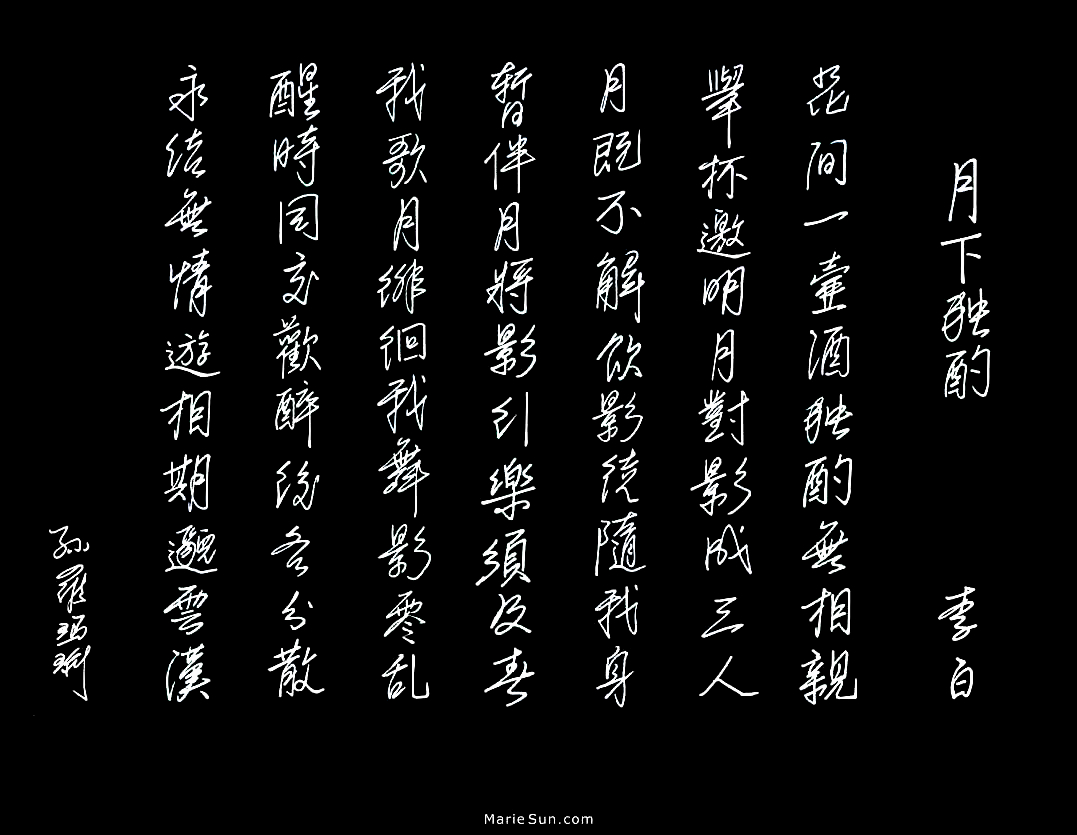 月下独酌 李白
花間一壺酒独酌無相親
舉杯邀明月對影成三人
月既不解飲影徒隨我身
暫伴月將影行樂須及春
我歌月徘徊我舞影零乱
醒時同交歡醉後各分散
永結無情遊相期邈雲漢
孫羅瑪琍
MarieSun.com